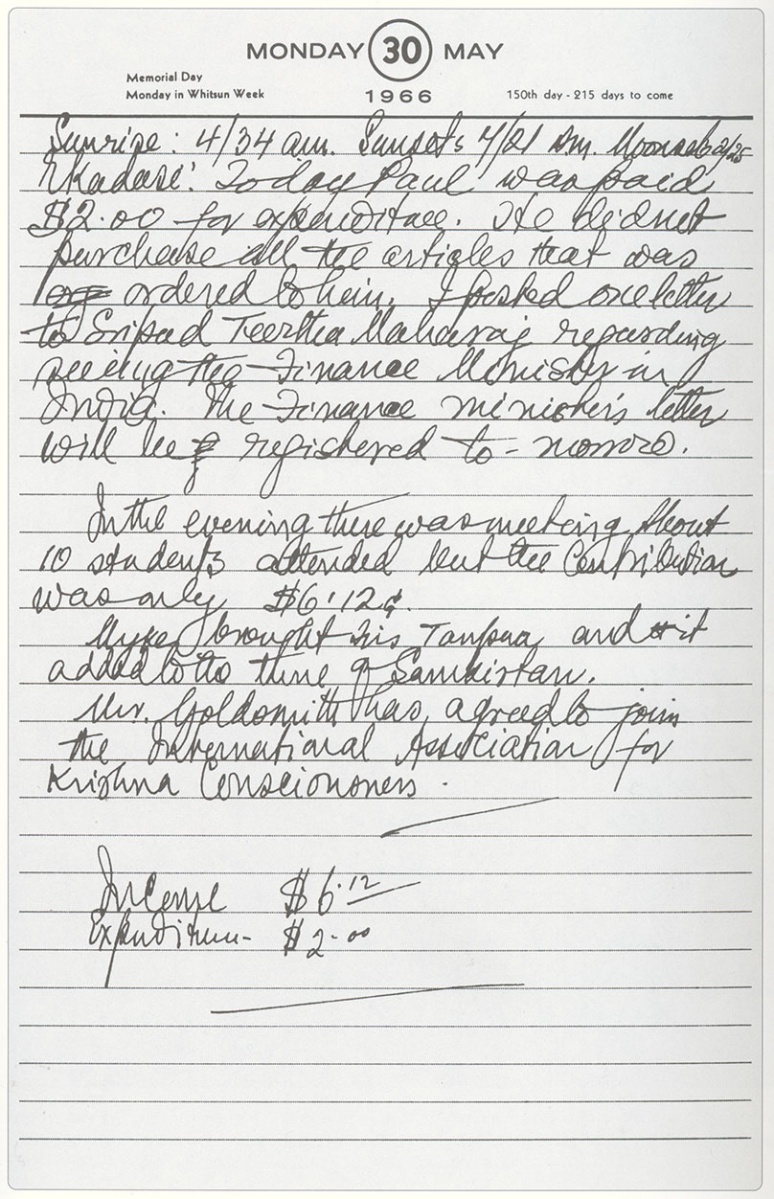 MONDAY 30 MAY
Memorial Day
Monday in Whitsun Week
1966
150th day - 215 days to come
Sunrise: 4/34 am. Sunset: 7/21 pm. Moonset: 2/25
Ekadasi: Today Paul was paid
$2.00 for expenditure. He did not
purchase all the articles that was
ordered to him. I posted one letter
to Sripad Teertha Maharaj regarding
seeing the Finance Minister in
India. The Finance minister's letter
will be registered to-morrow.
In the evening there was meeting about
10 students attended but the Contribution
was only $6.12¢.
Myke brought his Tanpura and it
added to the tune of Samkirtan.
Mr. Goldsmith has agreed to join
the International Association for
Krishna Consciousness.
Income $6.12
Expenditure- $2.00